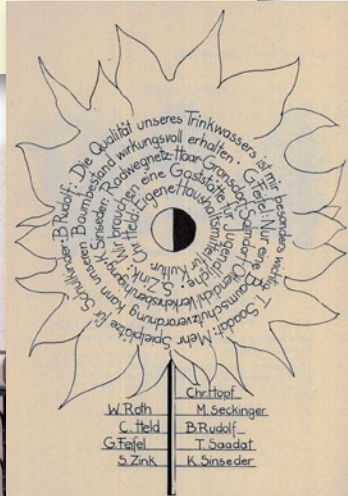 B.Rudolf: Die Qualität unseres Trinkwassers ist mir besonders wichtig.
T. Saadat: Mehr Spielplätze für Schulkinder.
G.Feifel: Nur eine Baumschutzverordnung kann unseren Baumbestand wirkungsvoll erhalten.
K. Sinseder: Radwegnetz-Haar-Gronsdorf-
S.Zink: Wir brauchen eine Gaststätte für Jugendliche.
Chr. Held: Eigene Haushaltsmittel für Kultur.
Chr. Hopf
W. Roth M. Seckinger
C. Held B.Rudolf
G.Feifel T. Saadat
S. Zink K. Sinseder